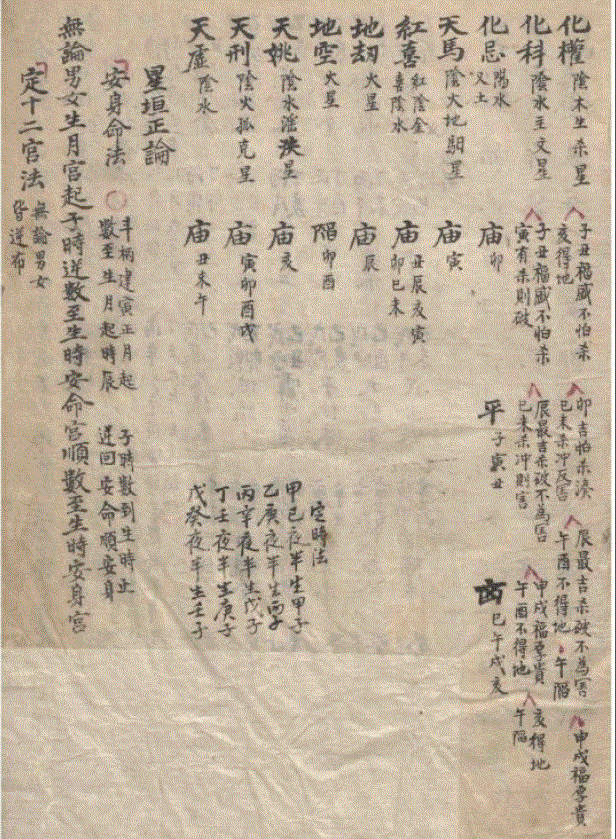 化權 陰木生杀星 子丑福盛不怕杀 亥得地 卯吉怕杀湊 巳未杀冲反害 辰最吉杀破不為害 午酉不得地。午陷 申戌福更貴
化科 陰水主文星 子丑福盛不怕杀 寅有杀則破 辰最吉杀破不為害 巳未杀冲則害 申戌福更貴 午酉不得地 亥得地 午陷
化忌 陽水 又土 庙 卯 平 子寅丑 巳午戌亥
天馬 陰火地期星 庙 寅
紅喜 紅陰金 喜陰水 庙 丑辰亥寅 卯巳未
地劫 火星 庙 辰
地空 火星 陷 卯酉
天姚 陰水 星 庙 亥
天刑 陰火孤克星 庙 寅卯酉戌
天虛 陰水 庙 丑未午
定時法
甲己夜半生甲子
乙庚夜半生丙子
丙辛夜半生戊子
丁壬夜半生庚子
戊癸夜半生壬子
星垣正論
安身命法 〇 斗柄建寅正月起 數至生月起時辰 子時數到生時止 逆回安命順安身
無論男女生月宮起子時逆數至生時安命宮順數至生時安身宮
定十二宮法 無論男女 皆逆布